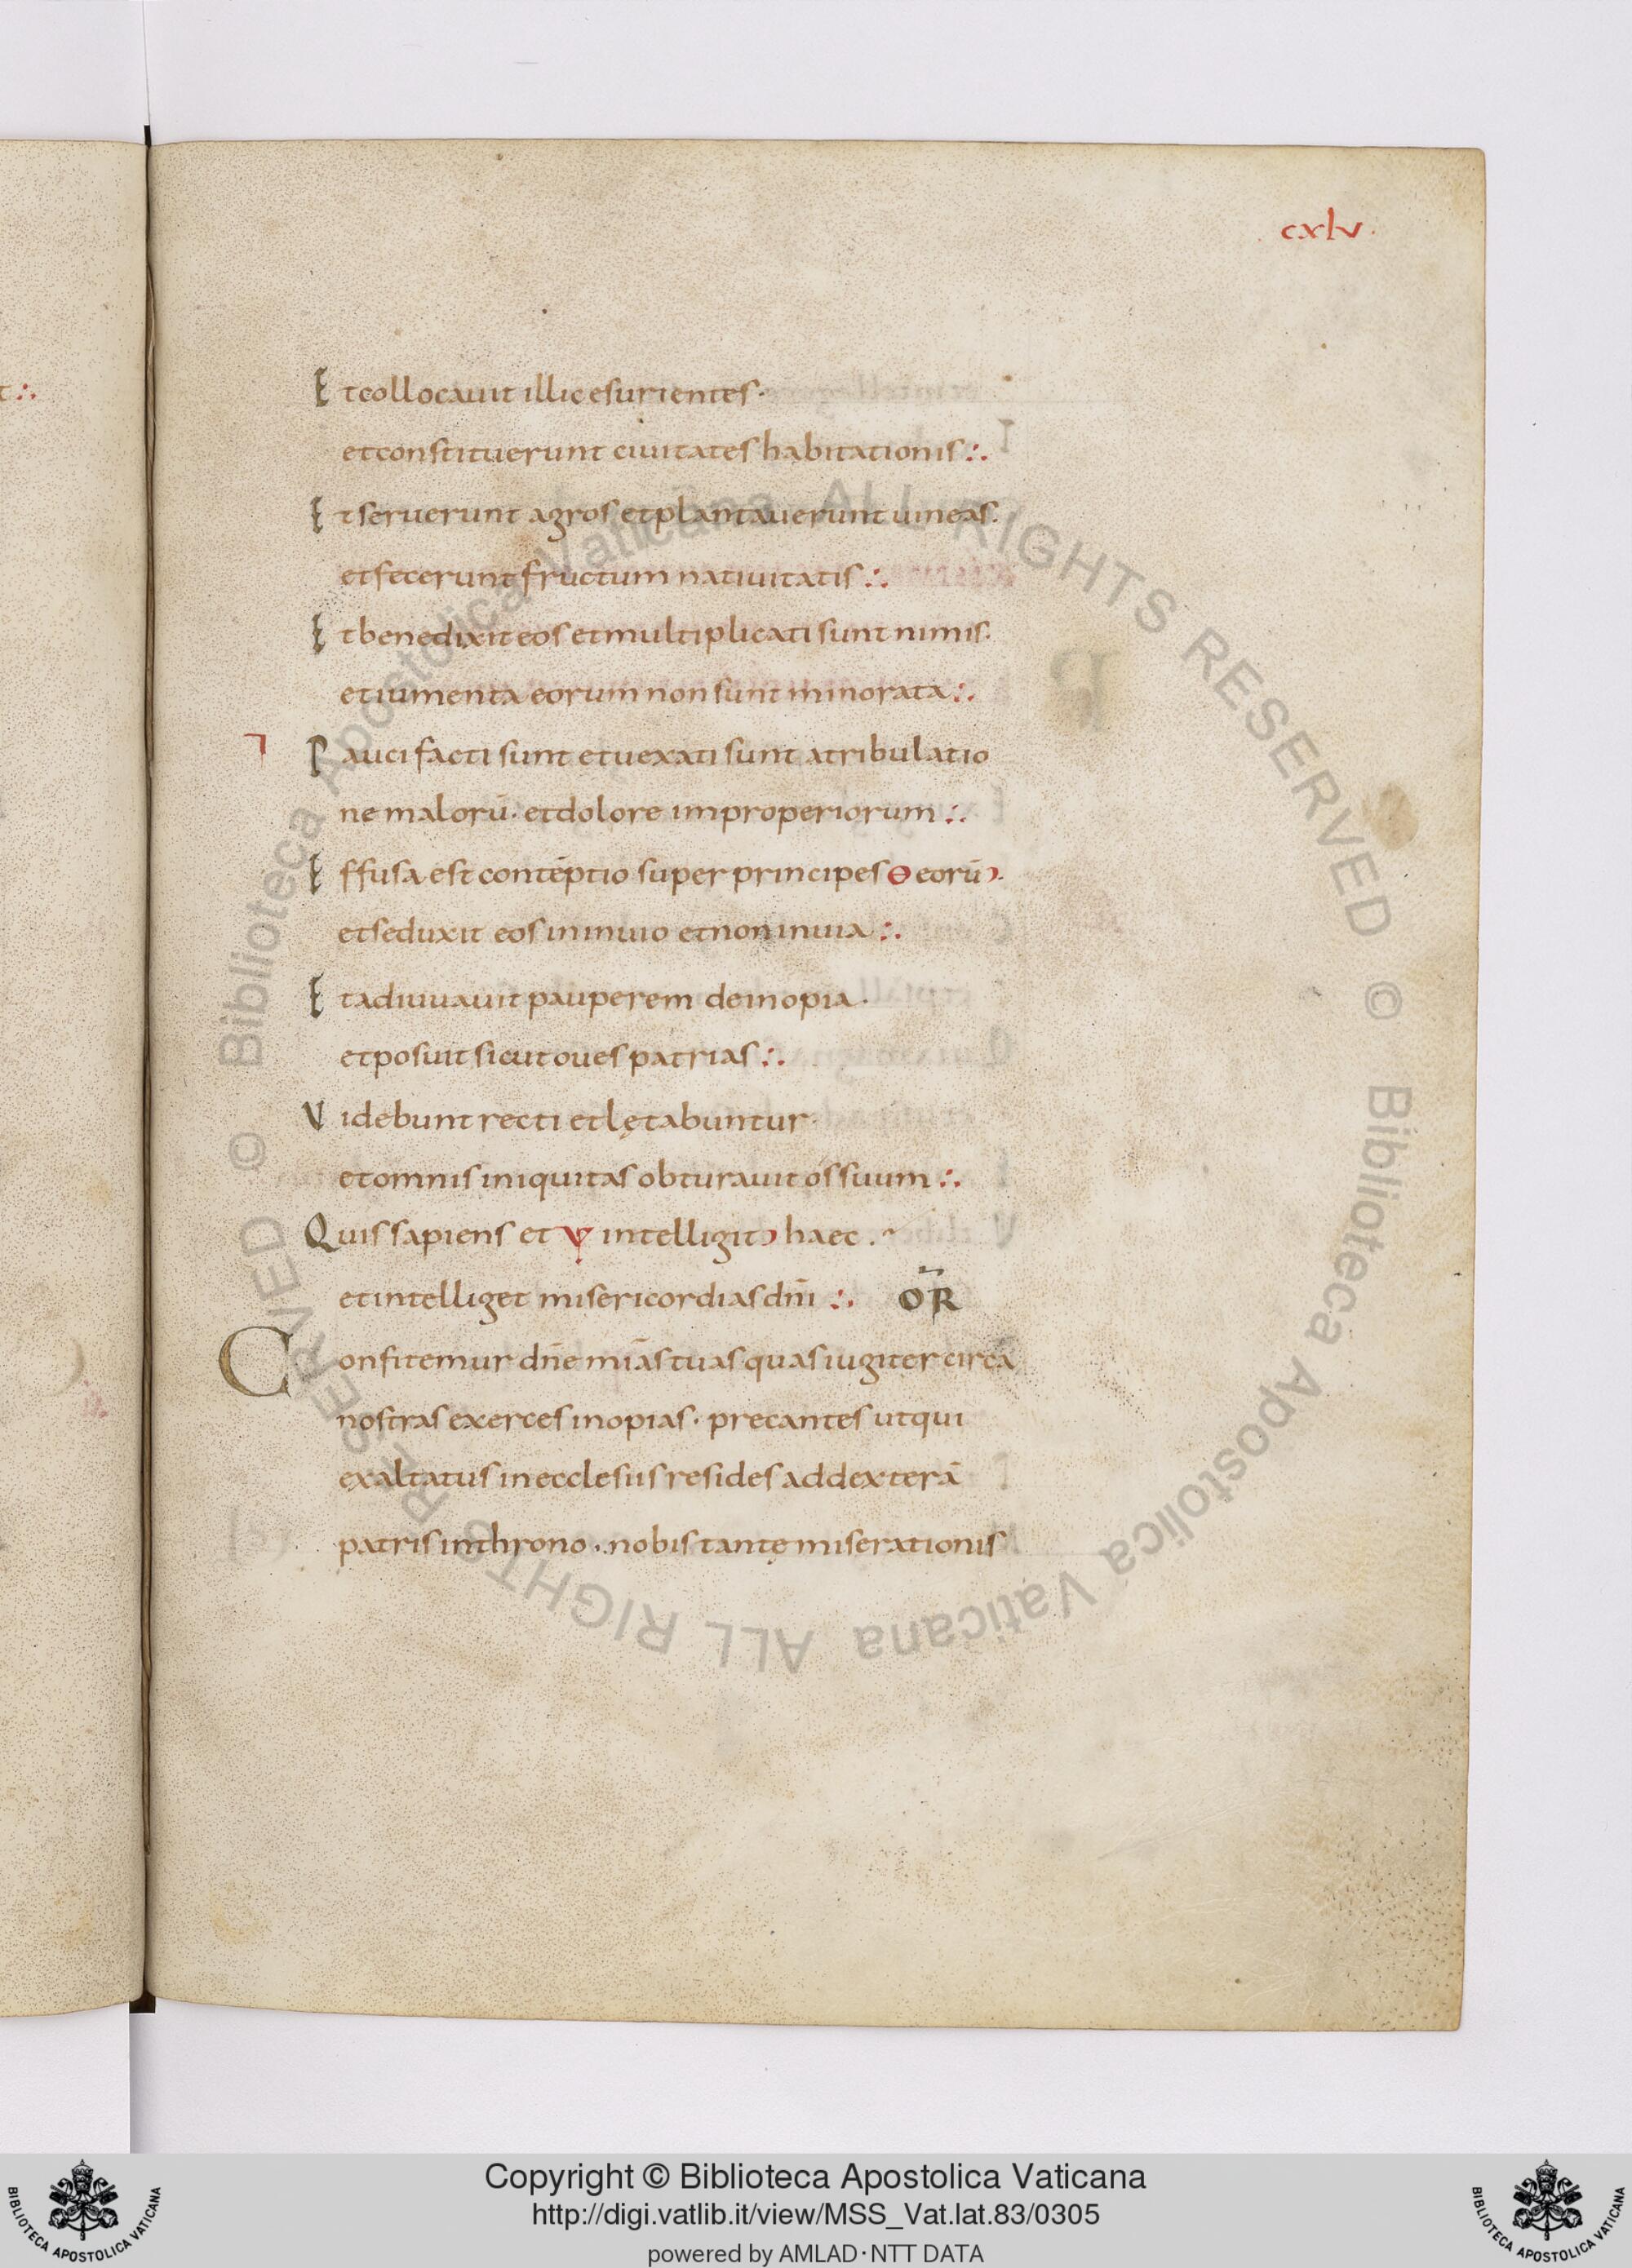 cxlv.
Et collocauit illic esurientes·
et constituerunt ciuitates habitationis ∴
Et seruerunt agros et plantauerunt uineas·
et fecerunt fructum natiuitatis ∴
Et benedixit eos et multiplicati sunt nimis·
et iumenta eorum non sunt minorata ∴
Pauci facti sunt et uexati sunt atribulatio
ne malorū· et dolore improperiorum ∴
Effusa est contēptio super principes ⲑ eorū·
et seduxit eos in inuio et non in uia ∴
Et adiuuauit pauperem de inopia·
et posuit sicut oues patrias ∴
Videbunt recti et lętabuntur·
et omnis iniquitas obturauit os suum ∴
Quis sapiens et intelligit haec·
et intelliget misericordias dn̄i ∴ OR̄
Confitemur dn̄e mīas tuas quas iugiter circa
nostras exerces inopias· precantes ut qui
exaltatus in ecclesiis resides ad dexterā
patris in throno· nobis tantę miserationis
© Biblioteca Apostolica Vaticana ALL RIGHTS RESERVED © Biblioteca Apostolica Vaticana ALL RIGHTS RESERVED
Copyright © Biblioteca Apostolica Vaticana
http://digi.vatlib.it/view/MSS_Vat.lat.83/0305
powered by AMLAD·NTT DATA
BIBLIOTECA APOSTOLICA VATICANA
BIBLIOTECA APOSTOLICA VATICANA